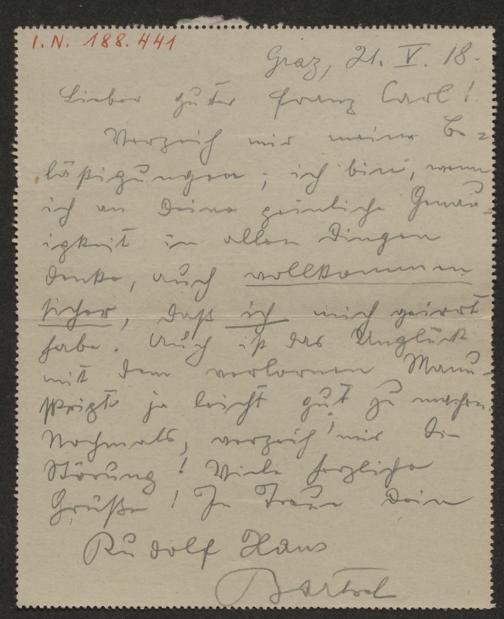 I.N. 188.441
Graz, 21. V. 18.
Lieber guter Franz Carl!
Verzeih mir meine Be=
lästigungen; ich bin, wenn
ich an Deine peinliche Genau=
igkeit in allen Dingen
denke, auch vollkommen
sicher, daß ich mich geirrt
habe. Auch ist das Unglück
mit dem verlornen Manu=
skript ja leicht gut zu machen.
Nochmals, verzeih' mir die
Störung! Viele herzliche
Grüße! In Treue Dein
Rudolf Hans
Bartsch